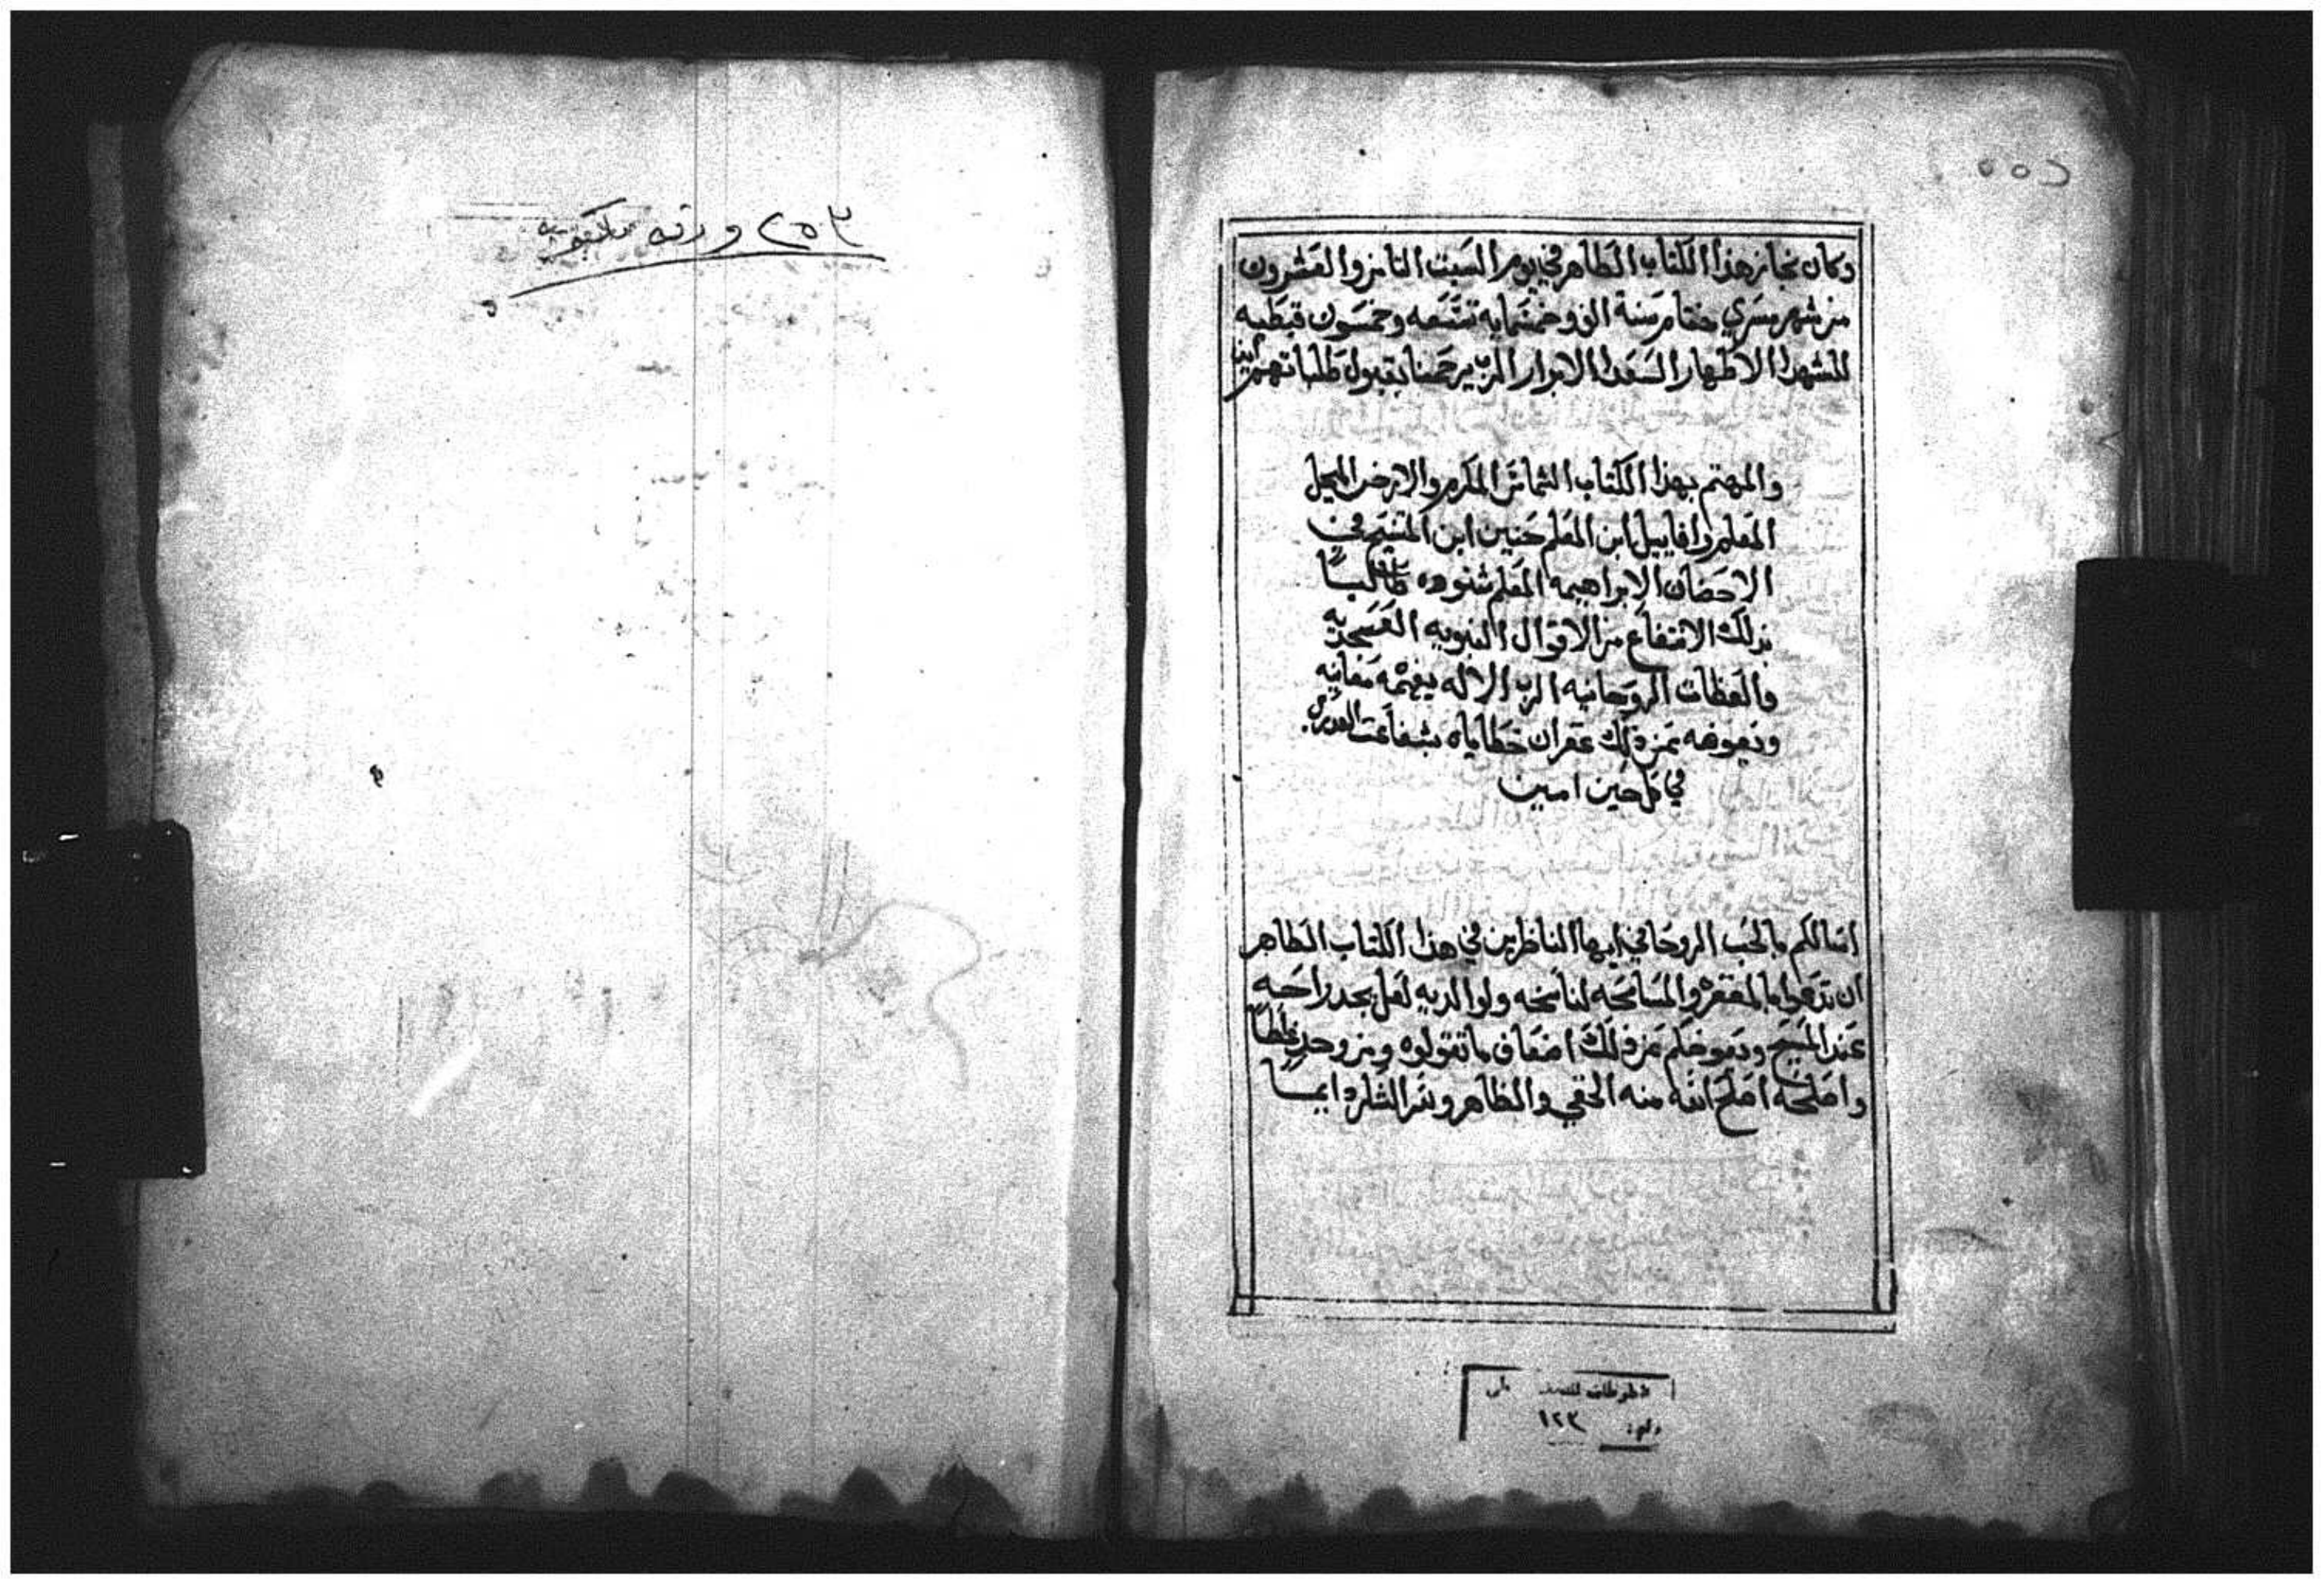 وكان نجاز هذا الكتاب الطاهر في يوم السبت الثامن والعشرون
من شهر مسري ختام سنة الف وخمسمايه تسعه وخمسون قبطيه
للشهدا الاطهار السعدا الابرار الرب يرحمنا بقبول طلباتهم امين
والمهتم بهذا الكتاب الشماس المكرم والارخن المبجل
المعلم رافاييل ابن المعلم حنين ابن المتنيح في
الاحضان الابراهيمه المعلم شنوده طالباً
بذلك الانتفاع من الاقوال النبويه العسجديه
والعظات الروحانيه الرب الاله يفهمه معانيه
ويعوضه عن ذلك غفران خطاياه بشفاعت
في كل حين امين
اسالكم بالحب الروحاني ايها الناظرين في هذا الكتاب الطاهر
ان تدعوا بالمغفره والمسامحه لناسخه ولوالديه لعل يجد راحه
عند المسيح ويعوضكم عن ذلك اضعاف ما تقولوه ومن وجد غلطاً
واصلحه اصلح الله منه الخفي والظاهر والشكر دايماً
٢٥٥
رقم: ١٢٣
٢٥٣ ورقه مكتوبه